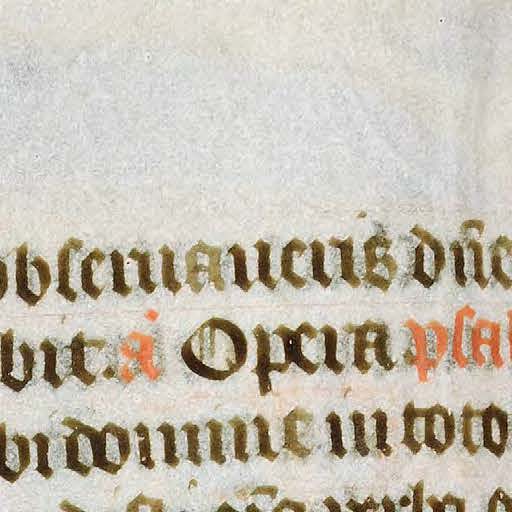 obseruaueris dn̄e
bit. a Opera psal
bi domine in toto